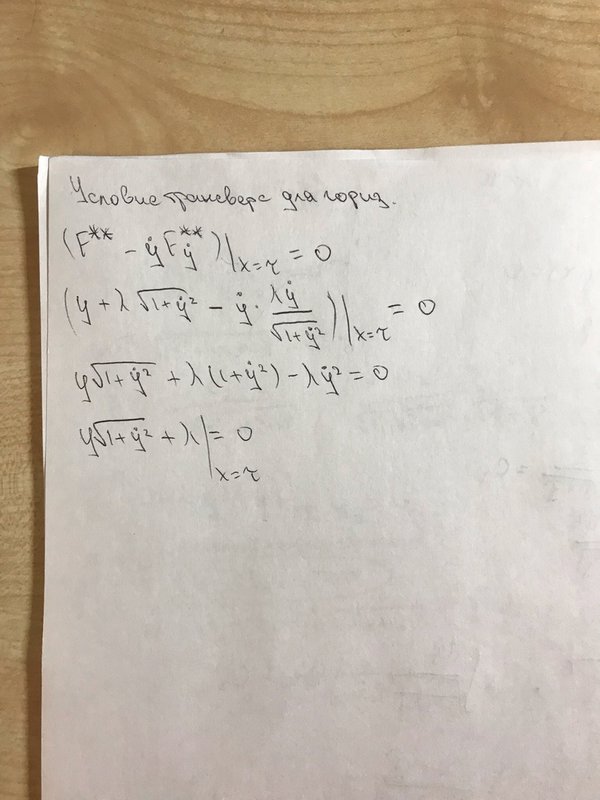 Условие трансверс для гориз.
(F** - ẏF**ẏ)|x=τ = 0
(y + λ√1+ẏ² - ẏ · λẏ/√1+ẏ²)|x=τ = 0
y√1+ẏ² + λ(1+ẏ²) - λẏ² = 0
y√1+ẏ² + λ|x=τ = 0